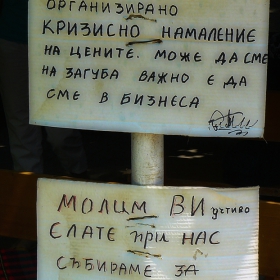 ОРГАНИЗИРАНО
КРИЗИСНО НАМАЛЕНИЕ
НА ЦЕНИТЕ. МОЖЕ ДА СМЕ
НА ЗАГУБА ВАЖНО Е ДА
СМЕ В БИЗНЕСА
МОЛИМ ВИ учтиво
ЕЛАТЕ ПРИ НАС
СЪБИРАМЕ ЗА